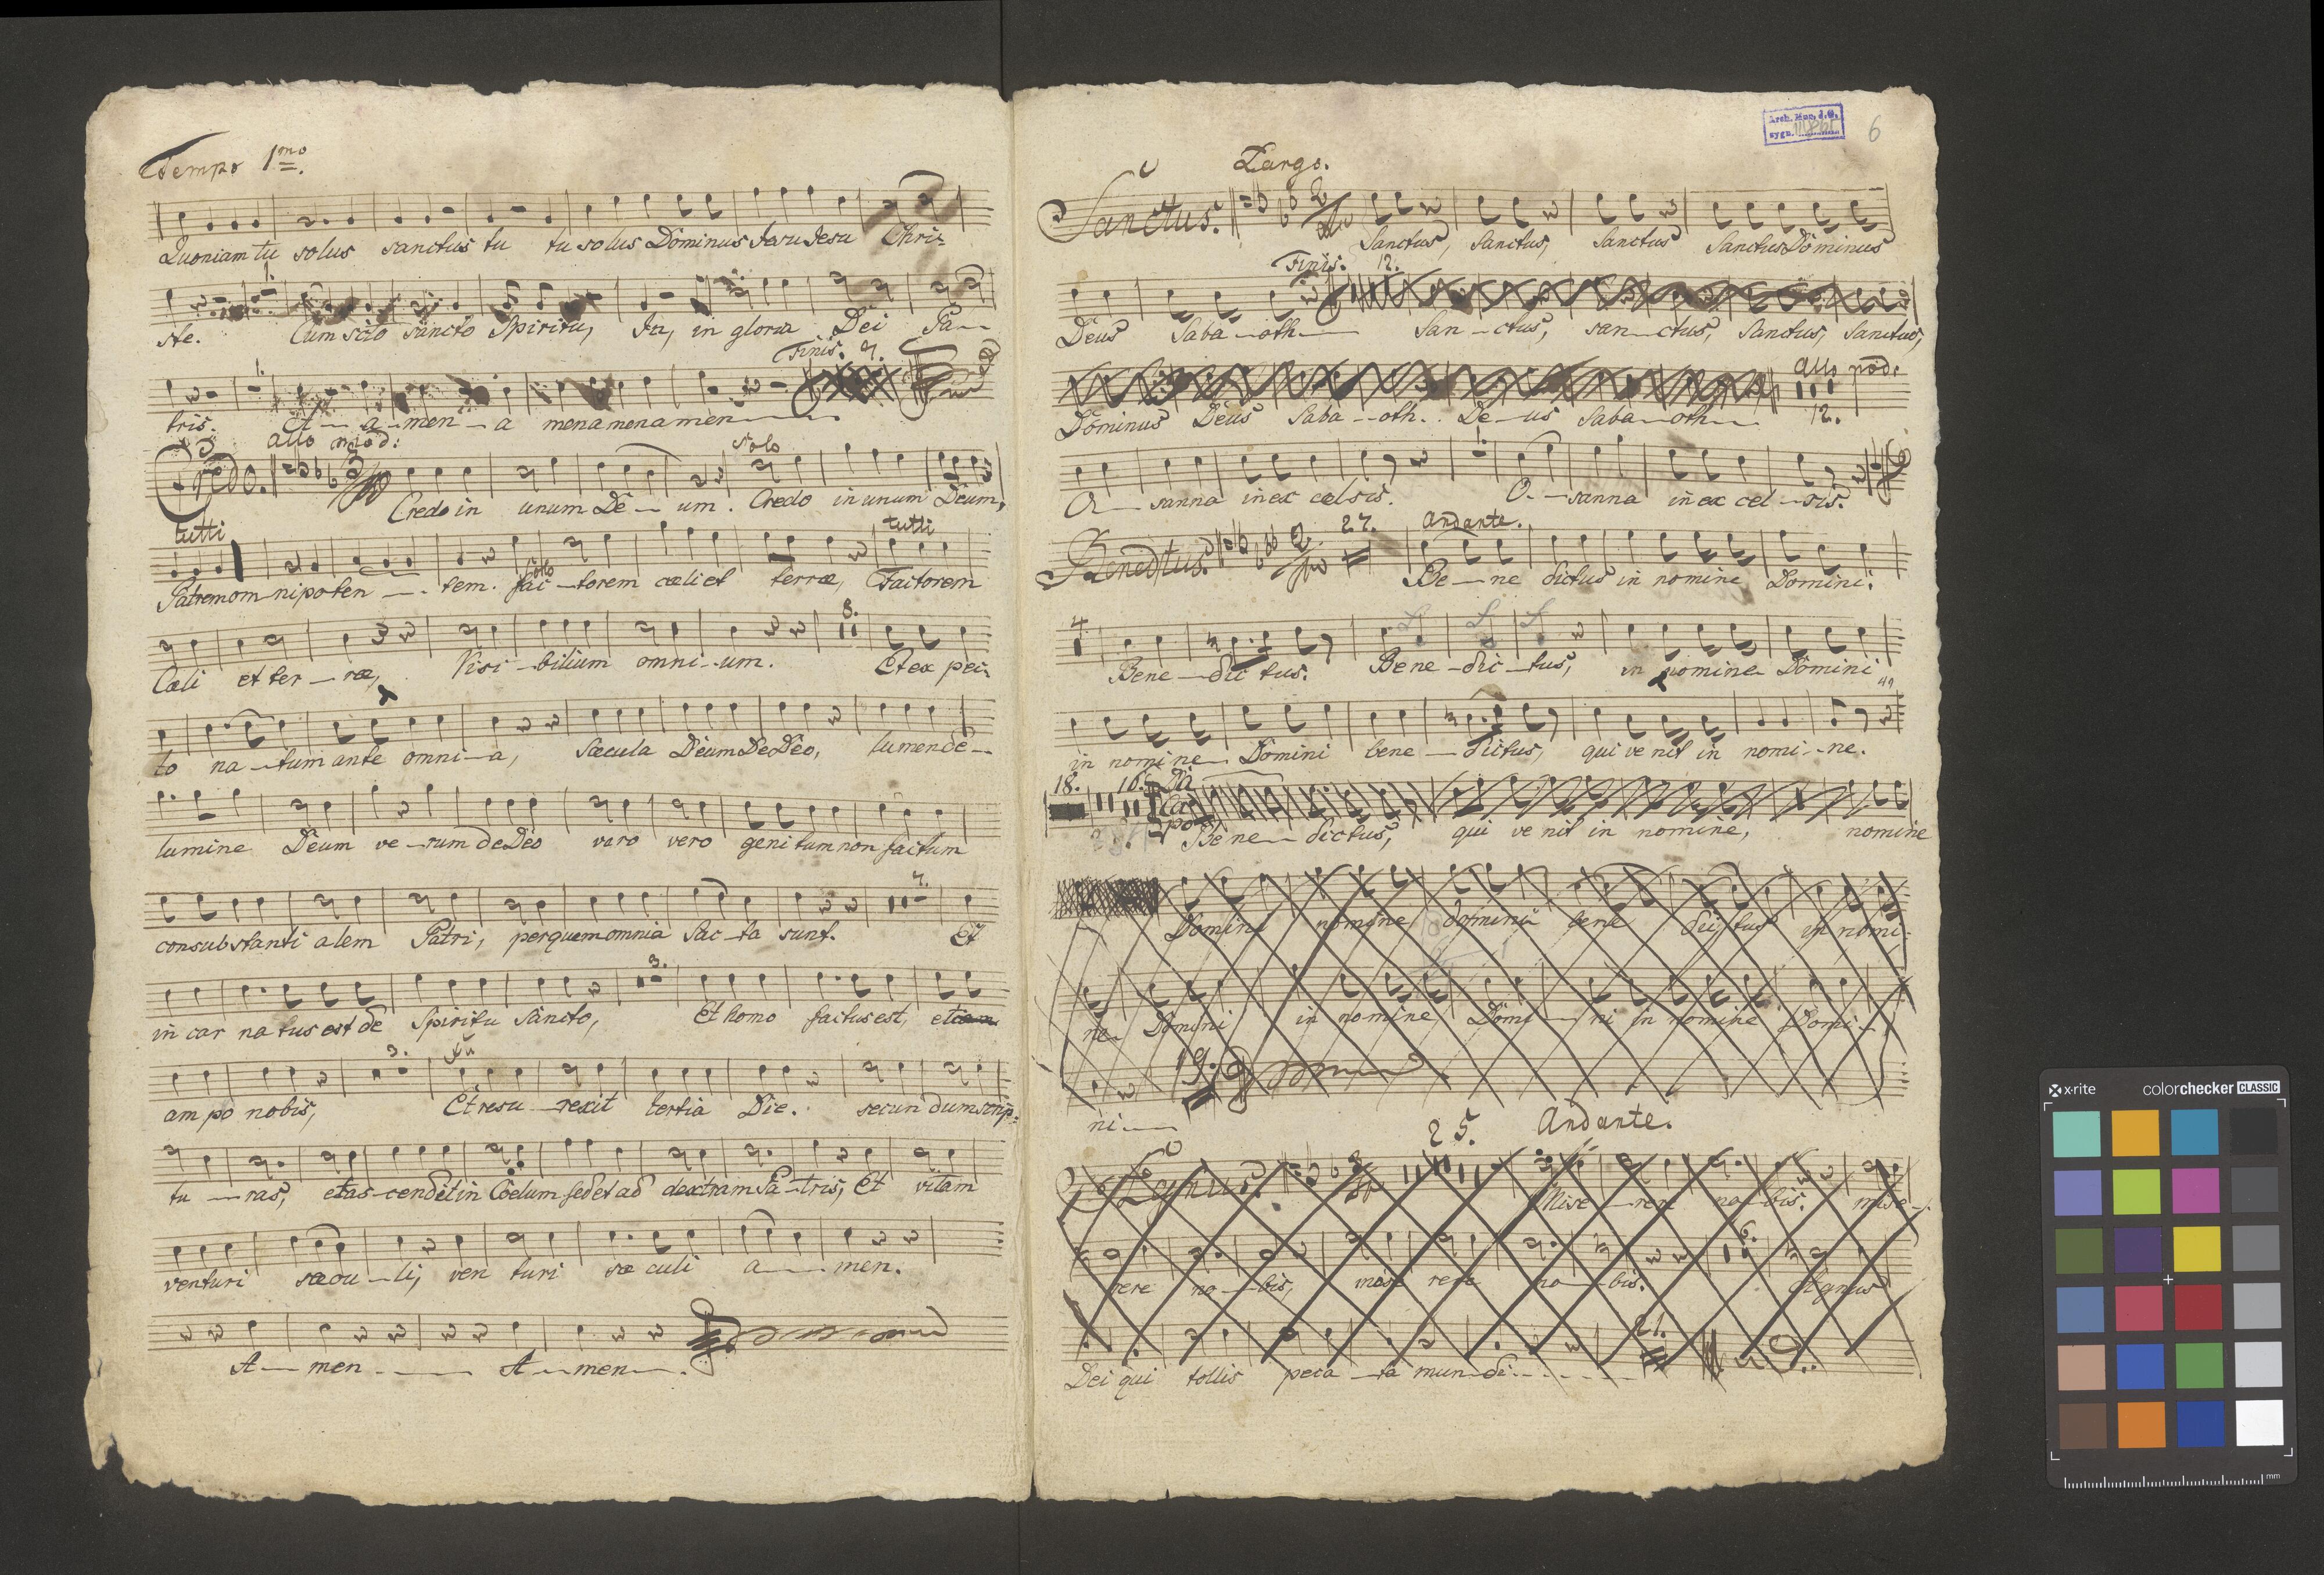 Tempo 1mo.
Quoniam tu solus sanctus tu tu solus Dominus Jesu Jesu Chri-
ste. Cum scto sancto Spiritu, in gloria Dei Pa--
Finis. 7.
tris. A--a-men-a menamenamen
allo mod: Solo
Credo. Credo in unum De-- um. Credo in unum Deum,
tutti tutti
Patrem omnipoten -- tem. solo fac-torem cæli et terræ, Factorem
8.
Cæli et ter-ræ, Visi-bilium omni-um. Et ex pec:
to na-tum ante omni-a, sæcula Deum De Deo, lumen de--
lumine Deum ve-rum de Deo varo vero genitum non factum
7.
consubstanti alem Patri, per quem omnia fac-ta sunt. Et
3.
in car natus est de Spiritu Sancto, Et homo factus est, et
3.
am po nobis, Et resu-rexit tertia Die. secundum scrip:
tu--ras, et as-cendit in Coelum sedet ad dextram Pa-tris, Et vitam
venturi sæcu-li, ven turi sæ culi a--- men.
A--men---- A--men--.
Arch. Muz. J.G.
sygn.
6
Largo.
Sanctus. Sanctus, Sanctus, Sanctus Sanctus Dominus
Finis. 12.
Deus Saba-oth-- San-ctus, san-ctus, Sanctus, Sanctus,
allo mod.
Dominus Deus Saba--oth.. De-us Saba-oth--. 12.
O-- sanna in ex celsis. O.--sanna in ex cel-sis.
27. Andante.
Beneditus. Be--ne dictus in nomine Domini.
4
Bene--dic tus. Bene-dic-tus, in nomine Domini
in nomine Domini bene--dictus, qui ve nit in nomi--ne.
18. 16. Da Ca po
Bene--dictus, qui ve nit in nomine, nomine
Domini nomine domini bene dictus in nomi-
ne Domini in nomine Domi--ni in nomine Domi-
19.
ni--
25. Andante.
Agnus. Mise--rere no-bis. mise-
6.
rere no--bis, mise rere no--bis. Agnus
21.
Dei qui tollis peca-ta mundi.
x-rite colorchecker CLASSIC
mm